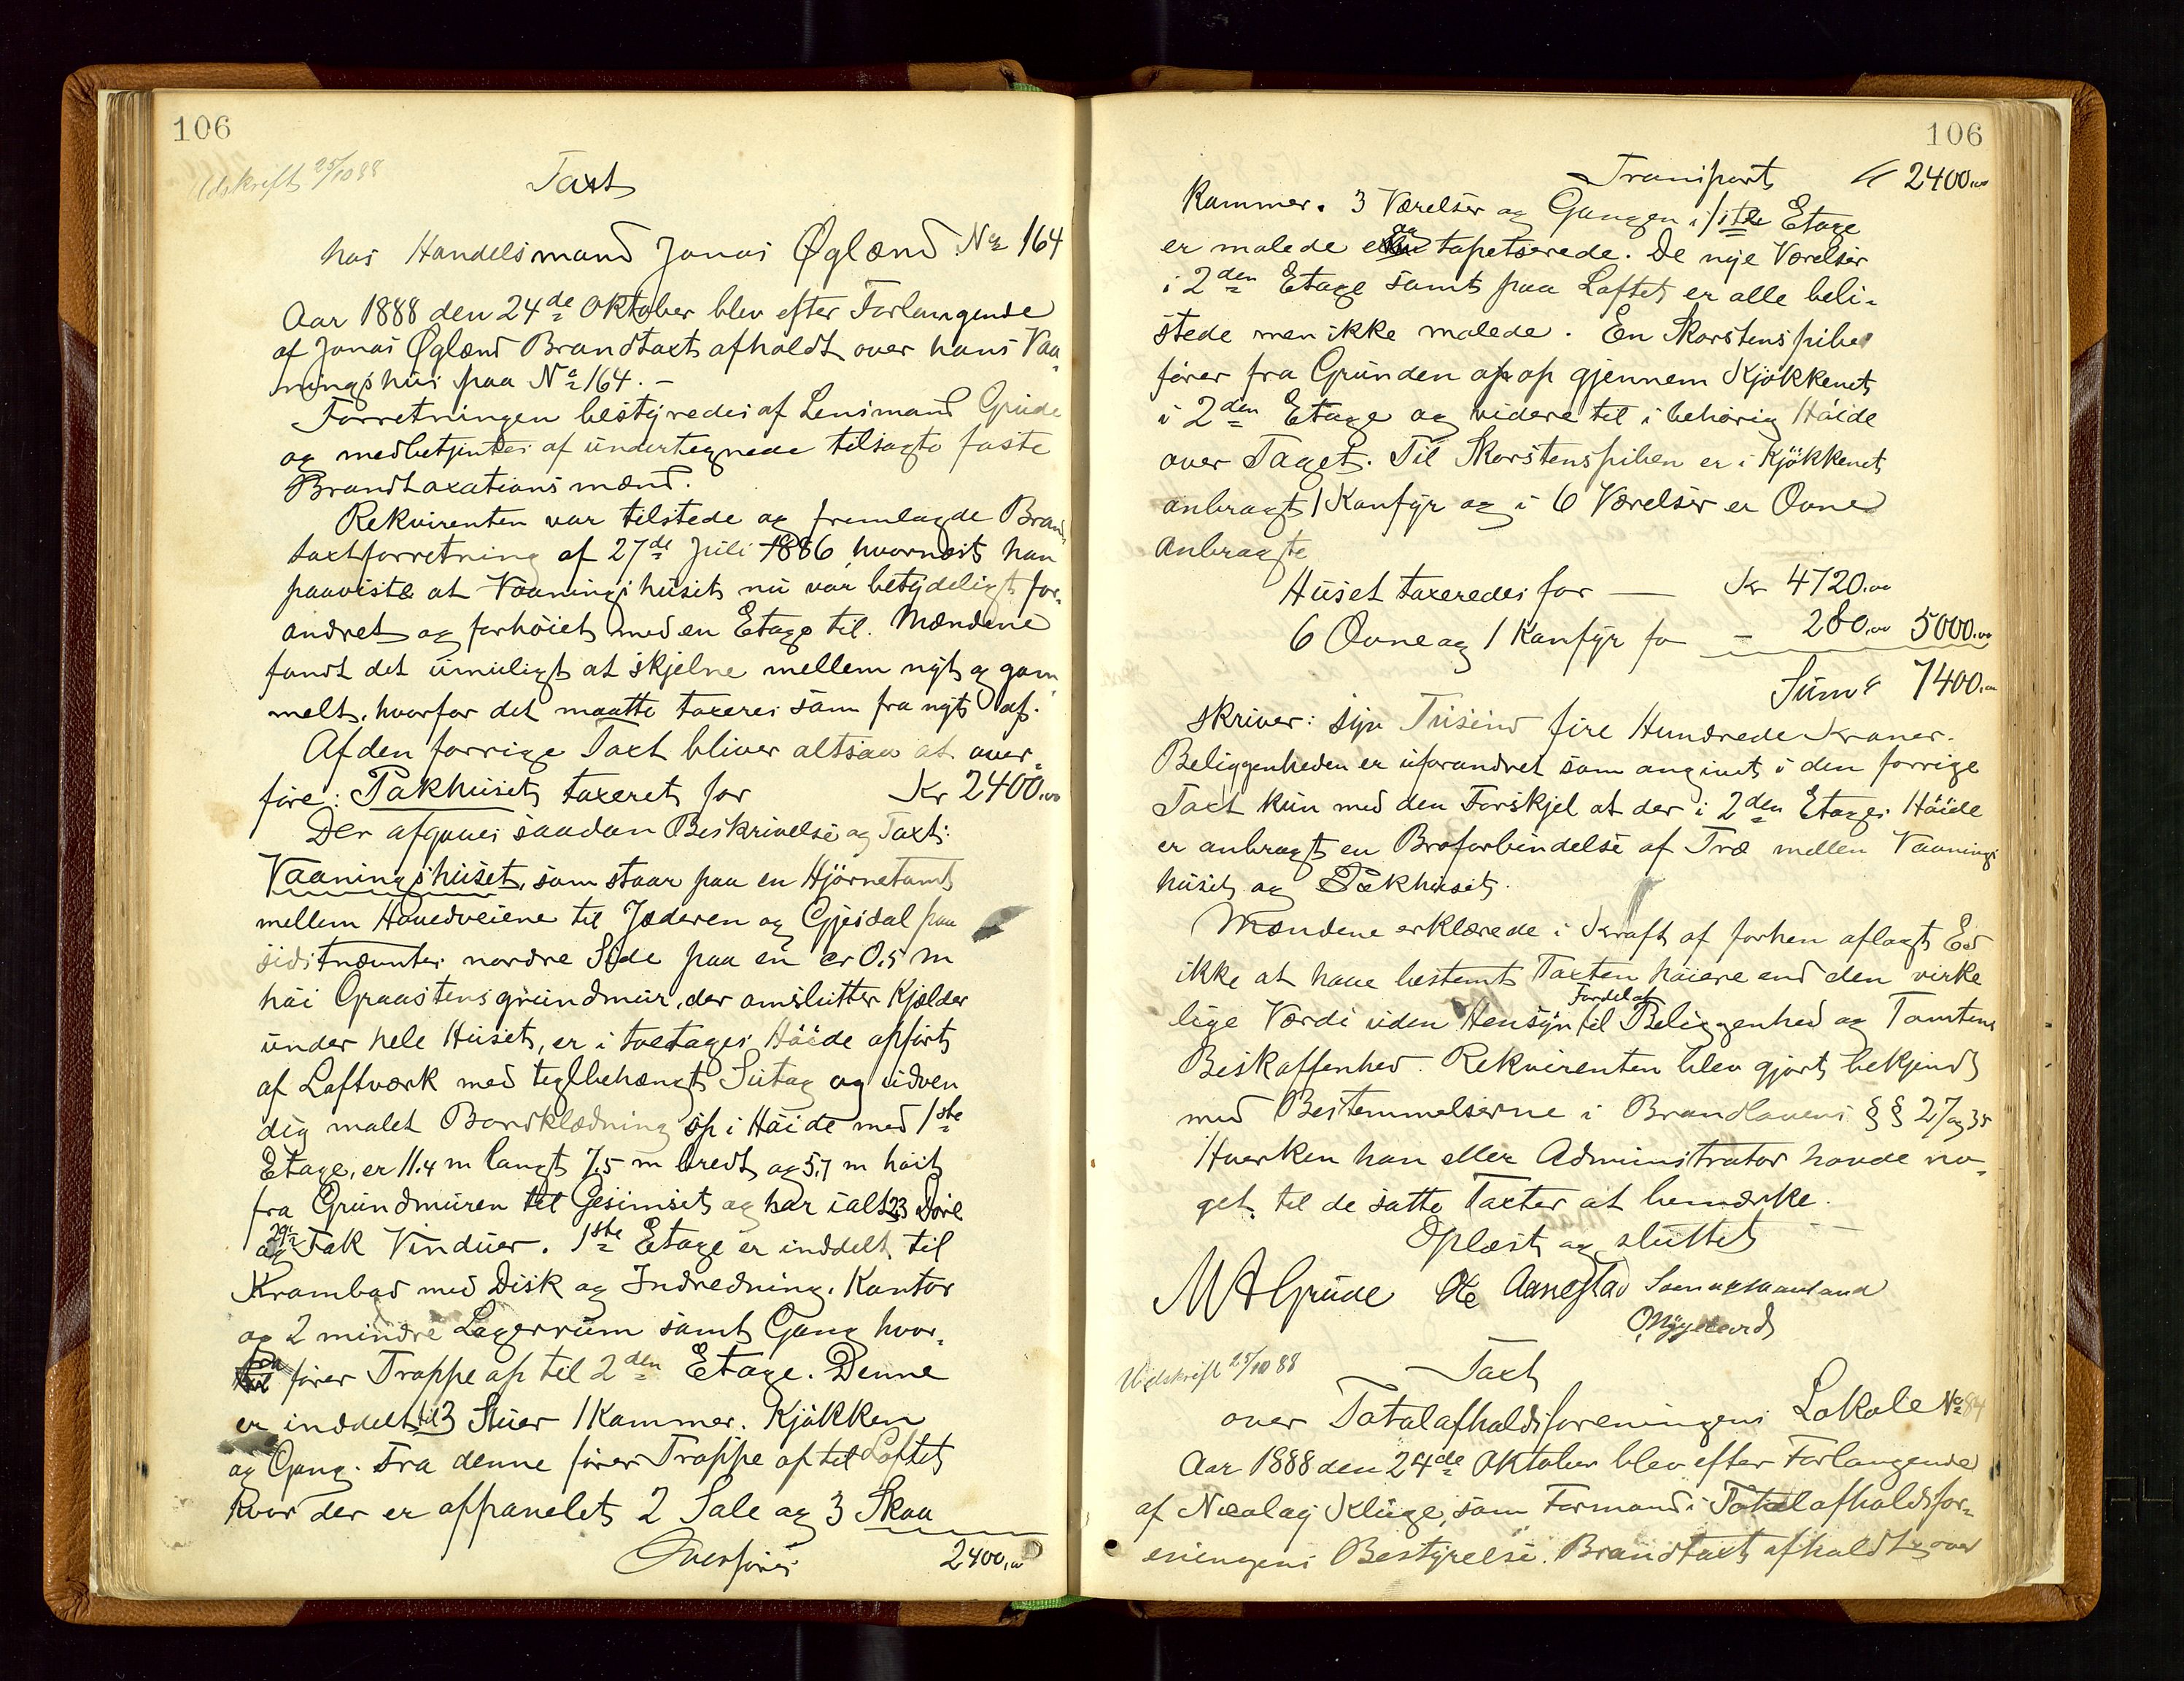 106
Udskrift 25/10 88
Taxt
hos Handelsmand Jonas Øglænd No 164
Aar 1888 den 24de Oktober blev efter Forlangende
af Jonas Øglænd Brandtaxt afholdt over hans Vaa-
ningshus paa No 164. –
Forretningen bestyredes af Lensmand Grude
og medbetjentes af undertegnede tilsagte faste
Brandtaxationsmænd.
Rekvirenten var tilstede og fremlagde Brand
taxtforretning af 27de Juli 1886, hvornæst han
paaviste at Vaaningshuset nu var betydeligt for-
andret og forhøiet med en Etage til. Mændene
fandt det umuligt at skjelne mellem nyt og gam-
melt, hvorfor det maatte taxeres som fra nyt af.
Af den forrige Taxt bliver altsaa at over-
føre: Pakhuset taxeret for Kr 2400.00
Der afgaves saadan Beskrivelse og Taxt:
Vaaningshuset, som staar paa en Hjørnetomt
mellem Hovedveiene til Jæderen og Gjesdal paa
sidstnævntes nordre Side paa en cr 0.5 m
høi Graastensgrundmur, der omslutter Kjælder
under hele Huset, er i toetages Høide opført
af Laftværk med teglbehængt Sutag og udven
dig malet Bordklædning op i Høide med 1ste
Etage, er 11.4 m langt 7.5 m bredt og 5.7 m høit
fra Grundmuren til Gesimset og har ialt 23 Døre
og 29 Fak Vinduer. 1ste Etage er inddelt til
Krambod med Disk og Indredning. Kontor
og 2 mindre Lagerrum samt Gang hvor-
fra fører Trappe op til 2den Etage. Denne
er inddelt til 3 Stuer 1 Kammer. Kjøkken
og Gang. Fra denne fører Trappe op til Loftet
hvor der er oppanelet 2 Sale og 3 Skaa
Overføres 2400.00
106
Transport Kr 2400.00
Kammer. 3 Værelser og Gangen i 1ste Etage
er malede og tapetserede. De nye Værelser
i 2den Etage samt paa Loftet er alle beli-
stede men ikke malede. En Skorstenspibe
fører fra Grunden op op gjennem Kjøkkenet
i 2den Etage og videre til i behørig Høide
over Taget. Til Skorstenspiben er i Kjøkkenet
anbragt 1 Komfyr og i 6 Værelser er Ovne
anbragte
Huset taxeredes for — Kr 4720.00
6 Ovne og 1 Komfyr fo – 280.00 5000.00
Sum Kr 7400.00
skriver: syv Tusind fire Hundrede Kroner.
Beliggenheden er uforandret som angivet i den forrige
Taxt kun med den Forskjel at der i 2den Etages Høide
er anbragt en Broforbindelse af Træ mellem Vaanings
huset og Pakhuset.
Mændene erklærede i Kraft af forhen aflagt Ed
ikke at have bestemt Taxten høiere end den virke
lige Værdi uden Hensyn til Fordel af Beliggenhed og Tomtens
Beskaffenhed. Rekvirenten blev gjort bekjendt
med Bestemmelserne i Brandlovens §§ 27 og 35
Hverken han eller Administrator havde no-
get til de satte Taxter at bemærke. –
Oplæst og sluttet
M A Grude Ole Aanestad
Udskrift 25/10 88
Taxt
over Totalafholdsforeningens Lokale No 84
Aar 1888 den 24de Oktober blev efter Forlangende
af Nicolay Kluge, som Formand i Totalafholdsfor-
eningens Bestyrelse. Brandtaxt afholdt over